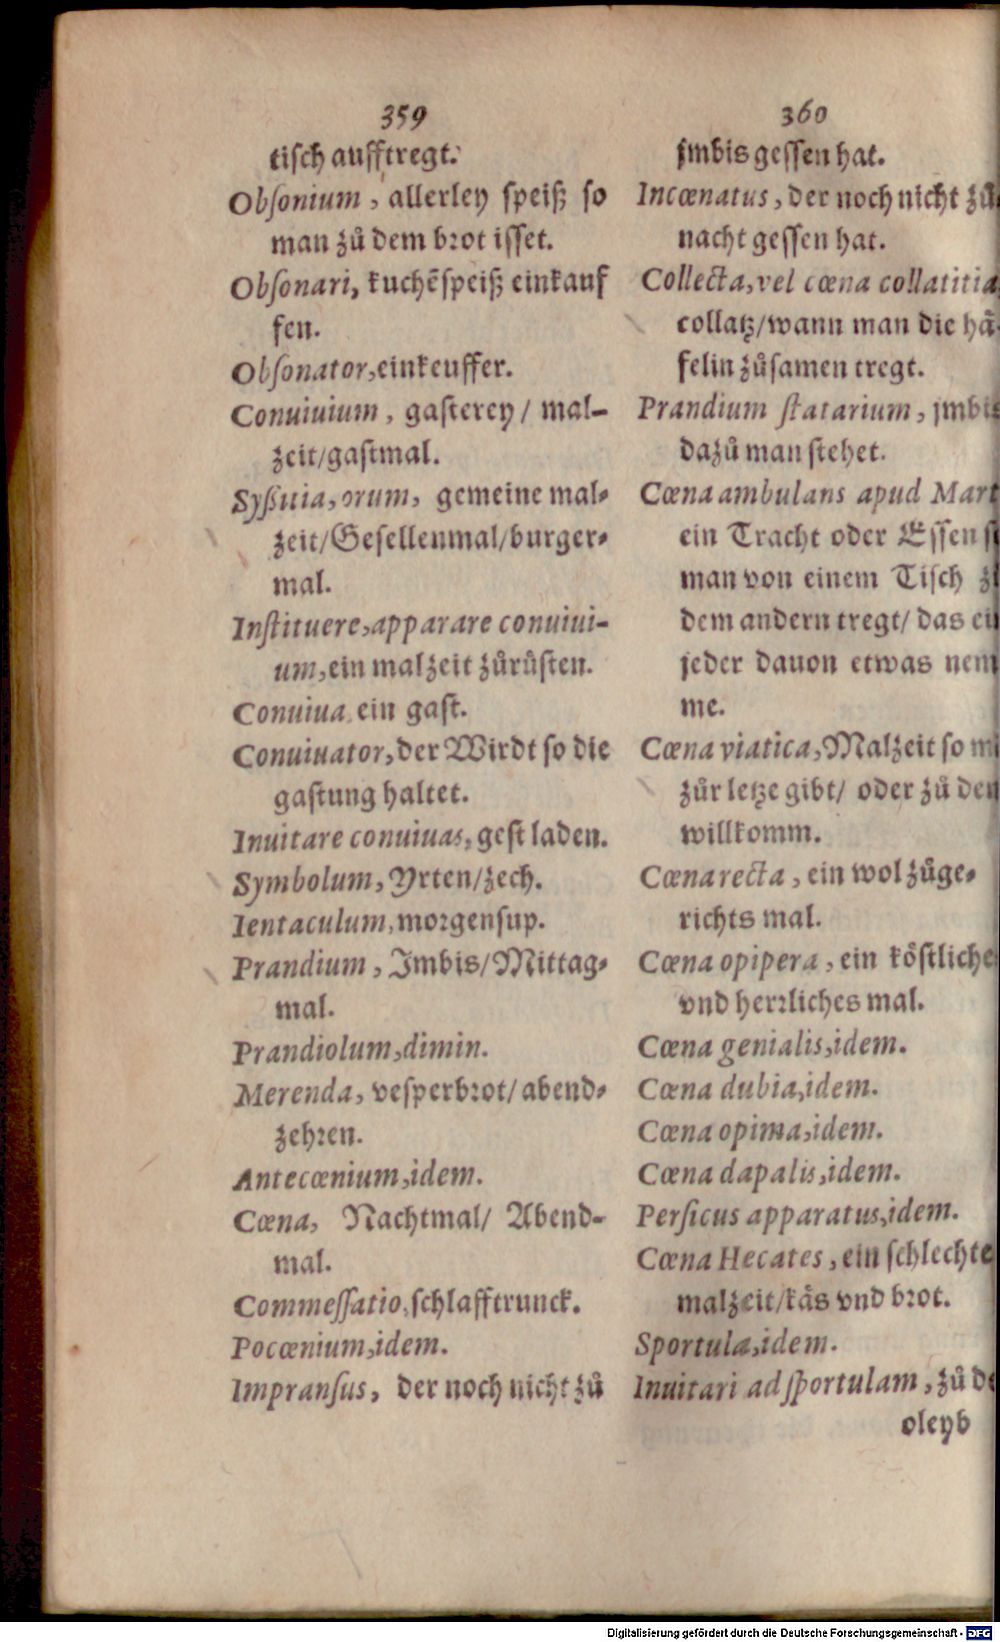 359
tisch aufftregt.
Obsonium, allerley speiß so
man zů dem brot isset.
Obsonari, kuchẽspeiß einkauf
fen.
Obsonator, einkeuffer.
Conuiuium, gasterey/ mal-
zeit/gastmal.
Syßitia, orum, gemeine mal-
zeit/Gesellenmal/burger-
mal.
Instituere, apparare conuiui-
um, ein malzeit zůrůsten.
Conuiua, ein gast.
Conuiuator, der Wirdt so die
gastung haltet.
Inuitare conuiuas, gest laden.
Symbolum, Yrten/zech.
Ientaculum, morgensup.
Prandium, Imbis/Mittag-
mal.
Prandiolum, dimin.
Merenda, vesperbrot/ abend-
zehren.
Antecœnium, idem.
Cœna, Nachtmal/ Abend-
mal.
Commessatio, schlafftrunck.
Pocœnium, idem.
Impransus, der noch nicht zů
360
jmbis gessen hat.
Incœnatus, der noch nicht zů
nacht gessen hat.
Collecta, vel cœna collatitia
collatz/wann man die hå-
felin zůsamen tregt.
Prandium statarium, jmbis
dazů man stehet.
Cœna ambulans apud Mart
ein Tracht oder Essen
man von einem Tisch
dem andern tregt/ das ein
jeder dauon etwas nem
me.
Cœna viatica, Malzeit so
zůr letze gibt/ oder zů den
willkomm.
Cœna recta, ein wol zůge-
richts mal.
Cœna opipera, ein kŏstliches
vnd herrliches mal.
Cœna genialis, idem.
Cœna dubia, idem.
Cœna opima, idem.
Cœna dapalis, idem.
Persicus apparatus, idem.
Cœna Hecates, ein schlechte
malzeit/kås vnd brot.
Sportula, idem.
Inuitari ad sportulam, zů
oleyb
Digitalisierung gefördert durch die Deutsche Forschungsgemeinschaft - DFG